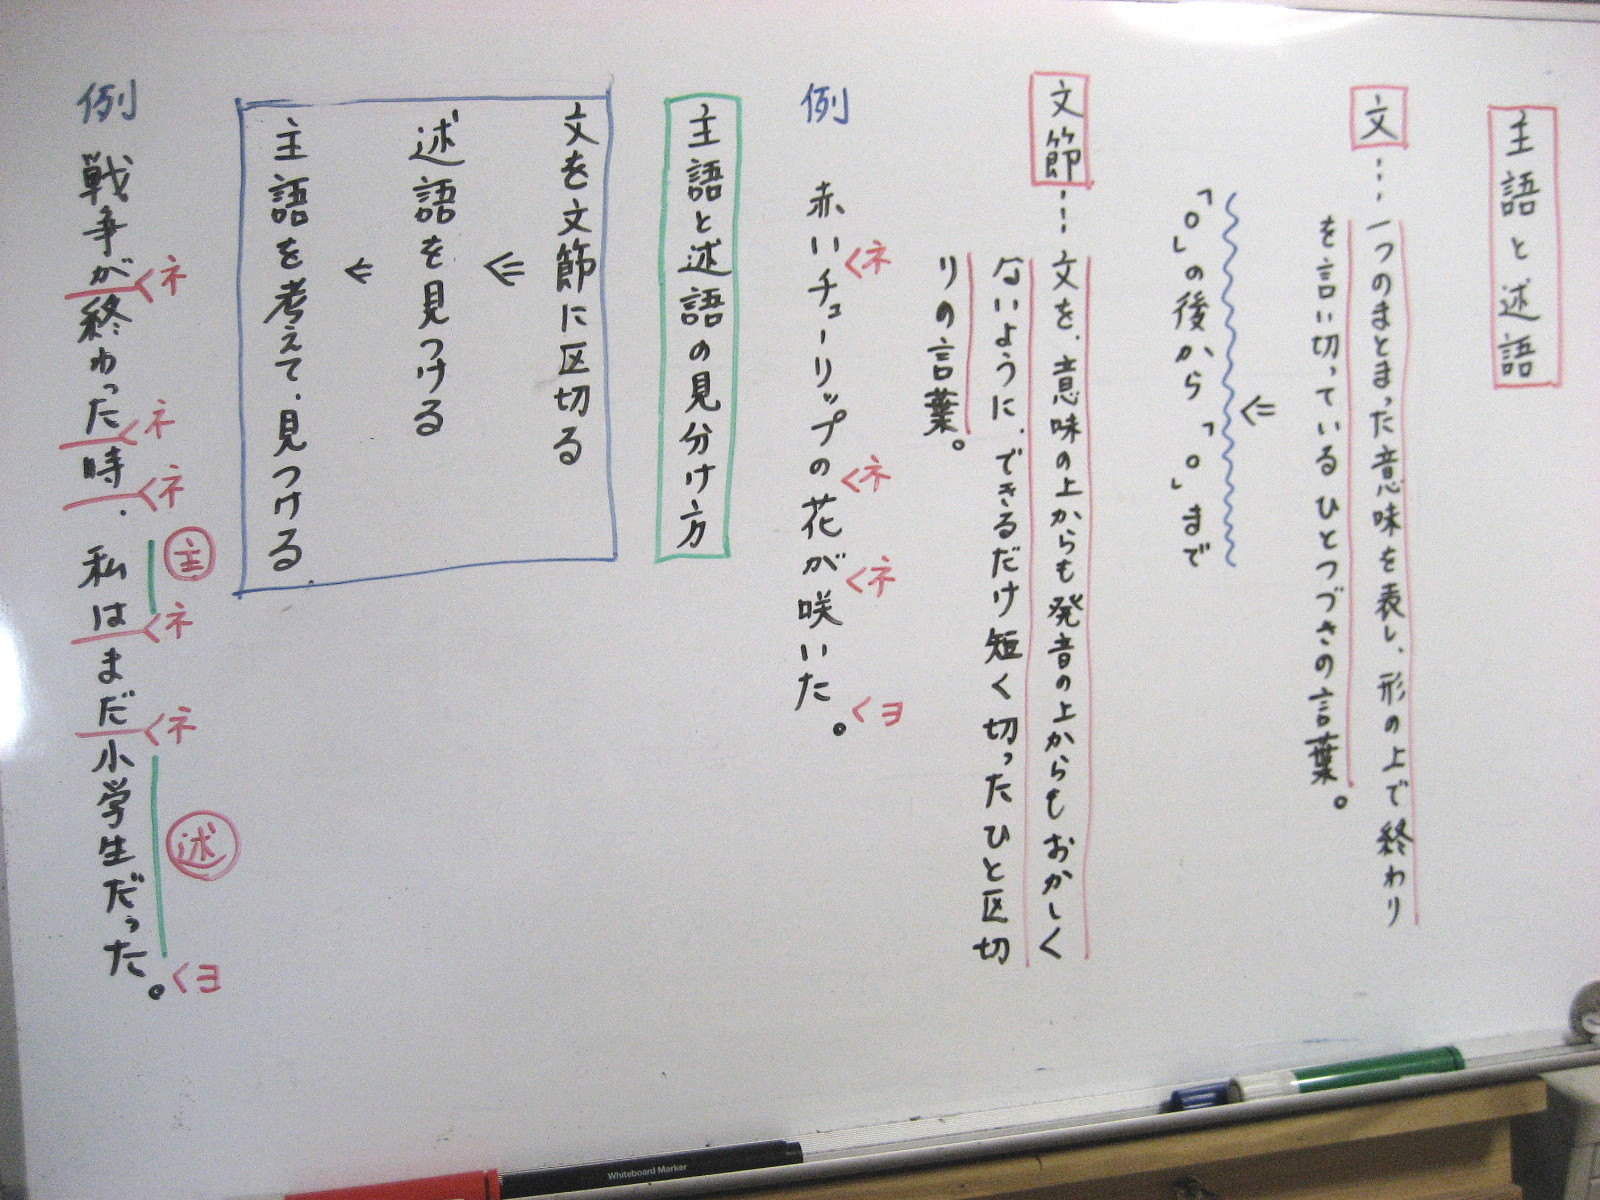 主語と述語
文…一つのまとまった意味を表し、形の上で終わり
を言い切っているひとつづきの言葉。
⇐
「。」の後から「。」まで
文節……文を、意味の上からも発音の上からもおかしく
ないように、できるだけ短く切ったひと区切
りの言葉。
例 赤いチューリップの花が咲いた。
ネ ネ ネ ヨ
主語と述語の見分け方
文を文節に区切る
⇐
述語を見つける
⇐
主語を考えて、見つける
ネ ネ ネ 主 ネ ネ 述 ヨ
例 戦争が終わった時、私はまだ小学生だった。
Whiteboard Marker